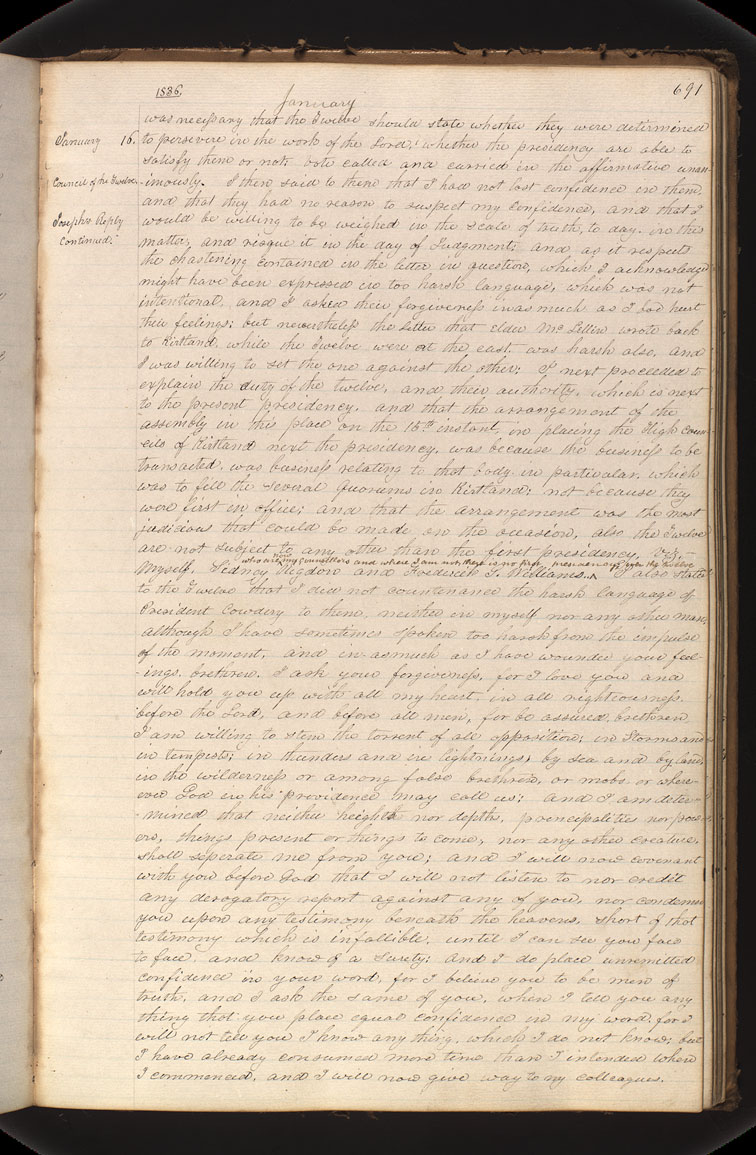 1836.
January
691
was necessary that the Twelve should state whether they were determined
January 16.
to persevere in the work of the Lord, whether the presidency are able to
satisfy them or not; vote called and carried in the affirmative unan-
Council of the Twelve.
-imously. I then said to them that I had not lost confidence in them,
and that they had no reason to suspect my confidence, and that I
Joseph's Reply
would be willing to be weighed in the scale of truth, to day in this
Continued.
matter, and risque it in the day of Judgment; and as it respects
the chastening contained in the letter in question, which I acknowledge
might have been expressed in too harsh language, which was not
intentional, and I asked their forgiveness in as much as I had hurt
their feelings; but nevertheless the letter that elder McLellin wrote back
to Kirtland, while the Twelve were at the east, was harsh also, and
I was willing to set the one against the other; I next proceeded to
explain the duty of the twelve, and their authority, which is next
to the present presidency, and that the arrangement of the
assembly in this place on the 15th instant, in placing the High Coun-
cils of Kirtland next the presidency, was because the business to be
transacted, was business relating to that body in particular, which
was to fill the several quorums in Kirtland; not because they
were first in office; and that the arrangement was the most
judicious that could be made on the occasion, also the Twelve
are not subject to any other than the first presidency, viz,-
who are now my Counsellors and where I am not, there is no first presidency over the Twelve
myself, Sidney Rigdon and Frederick G. Williams. I also stated
to the Twelve that I did not countenance the harsh language of
President Cowdery to them, neither in myself nor any other man,
although I have sometimes spoken too harsh from the impulse
of the moment, and in-asmuch as I have wounded your feel-
-ings, brethren, I ask your forgiveness, for I love you and
will hold you up with all my heart in all righteousness
before the Lord, and before all men, for be assured, brethren
I am willing to stem the torrent of all opposition; in Storms and
in tempests; in thunders and in lightnings, by sea and by land,
in the wilderness or among false brethren, or mobs, or wher-
ever God in his providence may call us; and I am deter-
-mined that neither heights nor depths, principalities nor pow-
ers, things present or things to come, nor any other creature,
shall seperate me from you; and I will now covenant
with you before God that I will not listen to nor credit
any derogatory report against any of you, nor condemn
you upon any testimony beneath the heavens, short of that
testimony which is infallible, until I can see you face
to face, and know of a surety; and I do place unremitted
confidence in your word, for I believe you to be men of
truth, and I ask the same of you, when I tell you any
thing that you place equal confidence in my word, for I
will not tell you I know any thing, which I do not know; but
I have already consumed more time than I intended when
I commenced, and I will now give way to my colleagues.